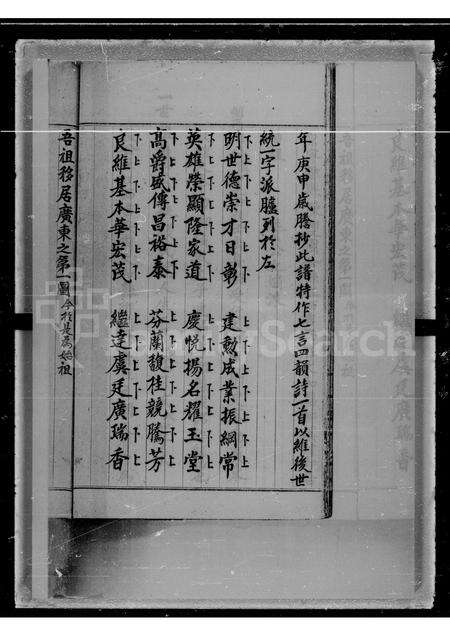 年庚申歲謄抄此譜特作七言四韻詩一首以維後世
統一字派臚列於左
明世德崇才日彰 建勲成業振綱常
下上下下下上上 下下上上下下上
英雄榮顯隆家道 慶悅揚名耀玉堂
高爵盛傳昌裕泰 芬蘭馥桂競騰芳
良維基本華宏茂 繼達虞廷廣瑞香
吾祖移居廣東之第一圖今於是為始祖
FamilySearch